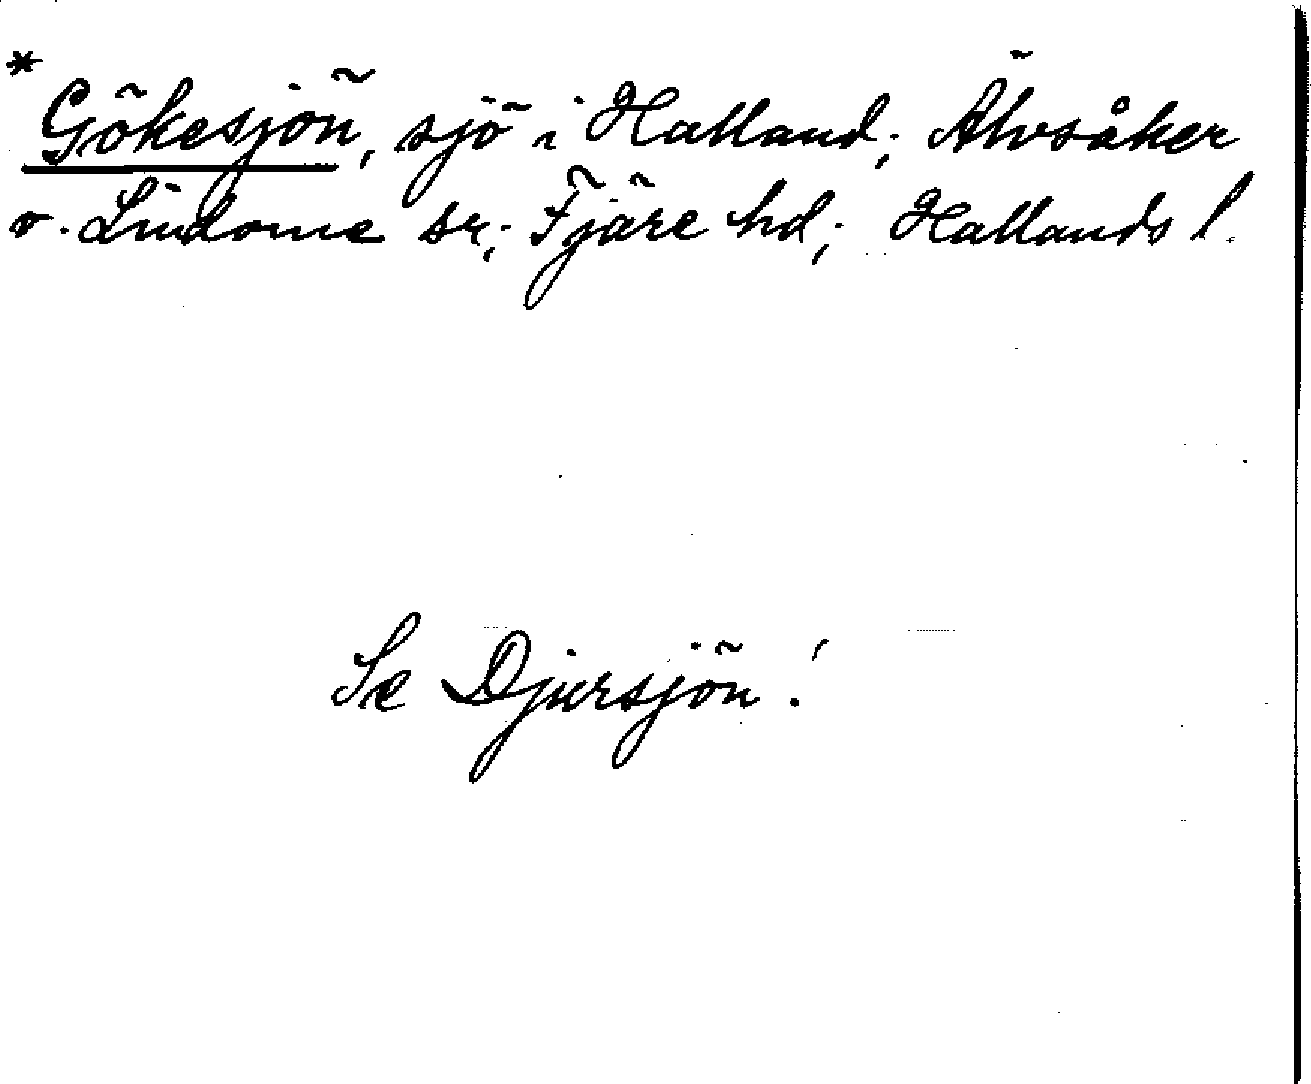 * Gökesjön, sjö i Halland; Älvsåker
o. Lindome sr; Fjäre hd; Hallands l.
Se Djursjön!